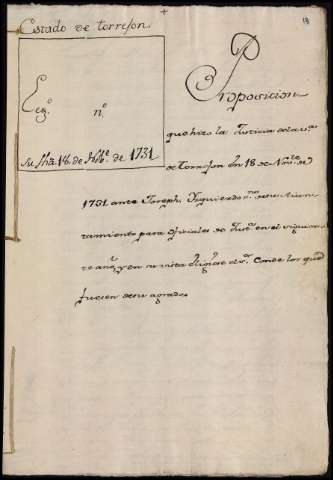 Estado de torrejon
13
Leg.º n.º
Su fha 18. de Nob.e de 1731
Proposicion
que hizo la Justicia de la v.ª
de Torrejon en 18 de Nov.re de
1731 ante Joseph Yzquierdo ss.no de su Ayun
tamiento para oficiales de Just.ª en el siguien
te año, y en su vista elija el s.r Conde los que
fuesen de su agrado